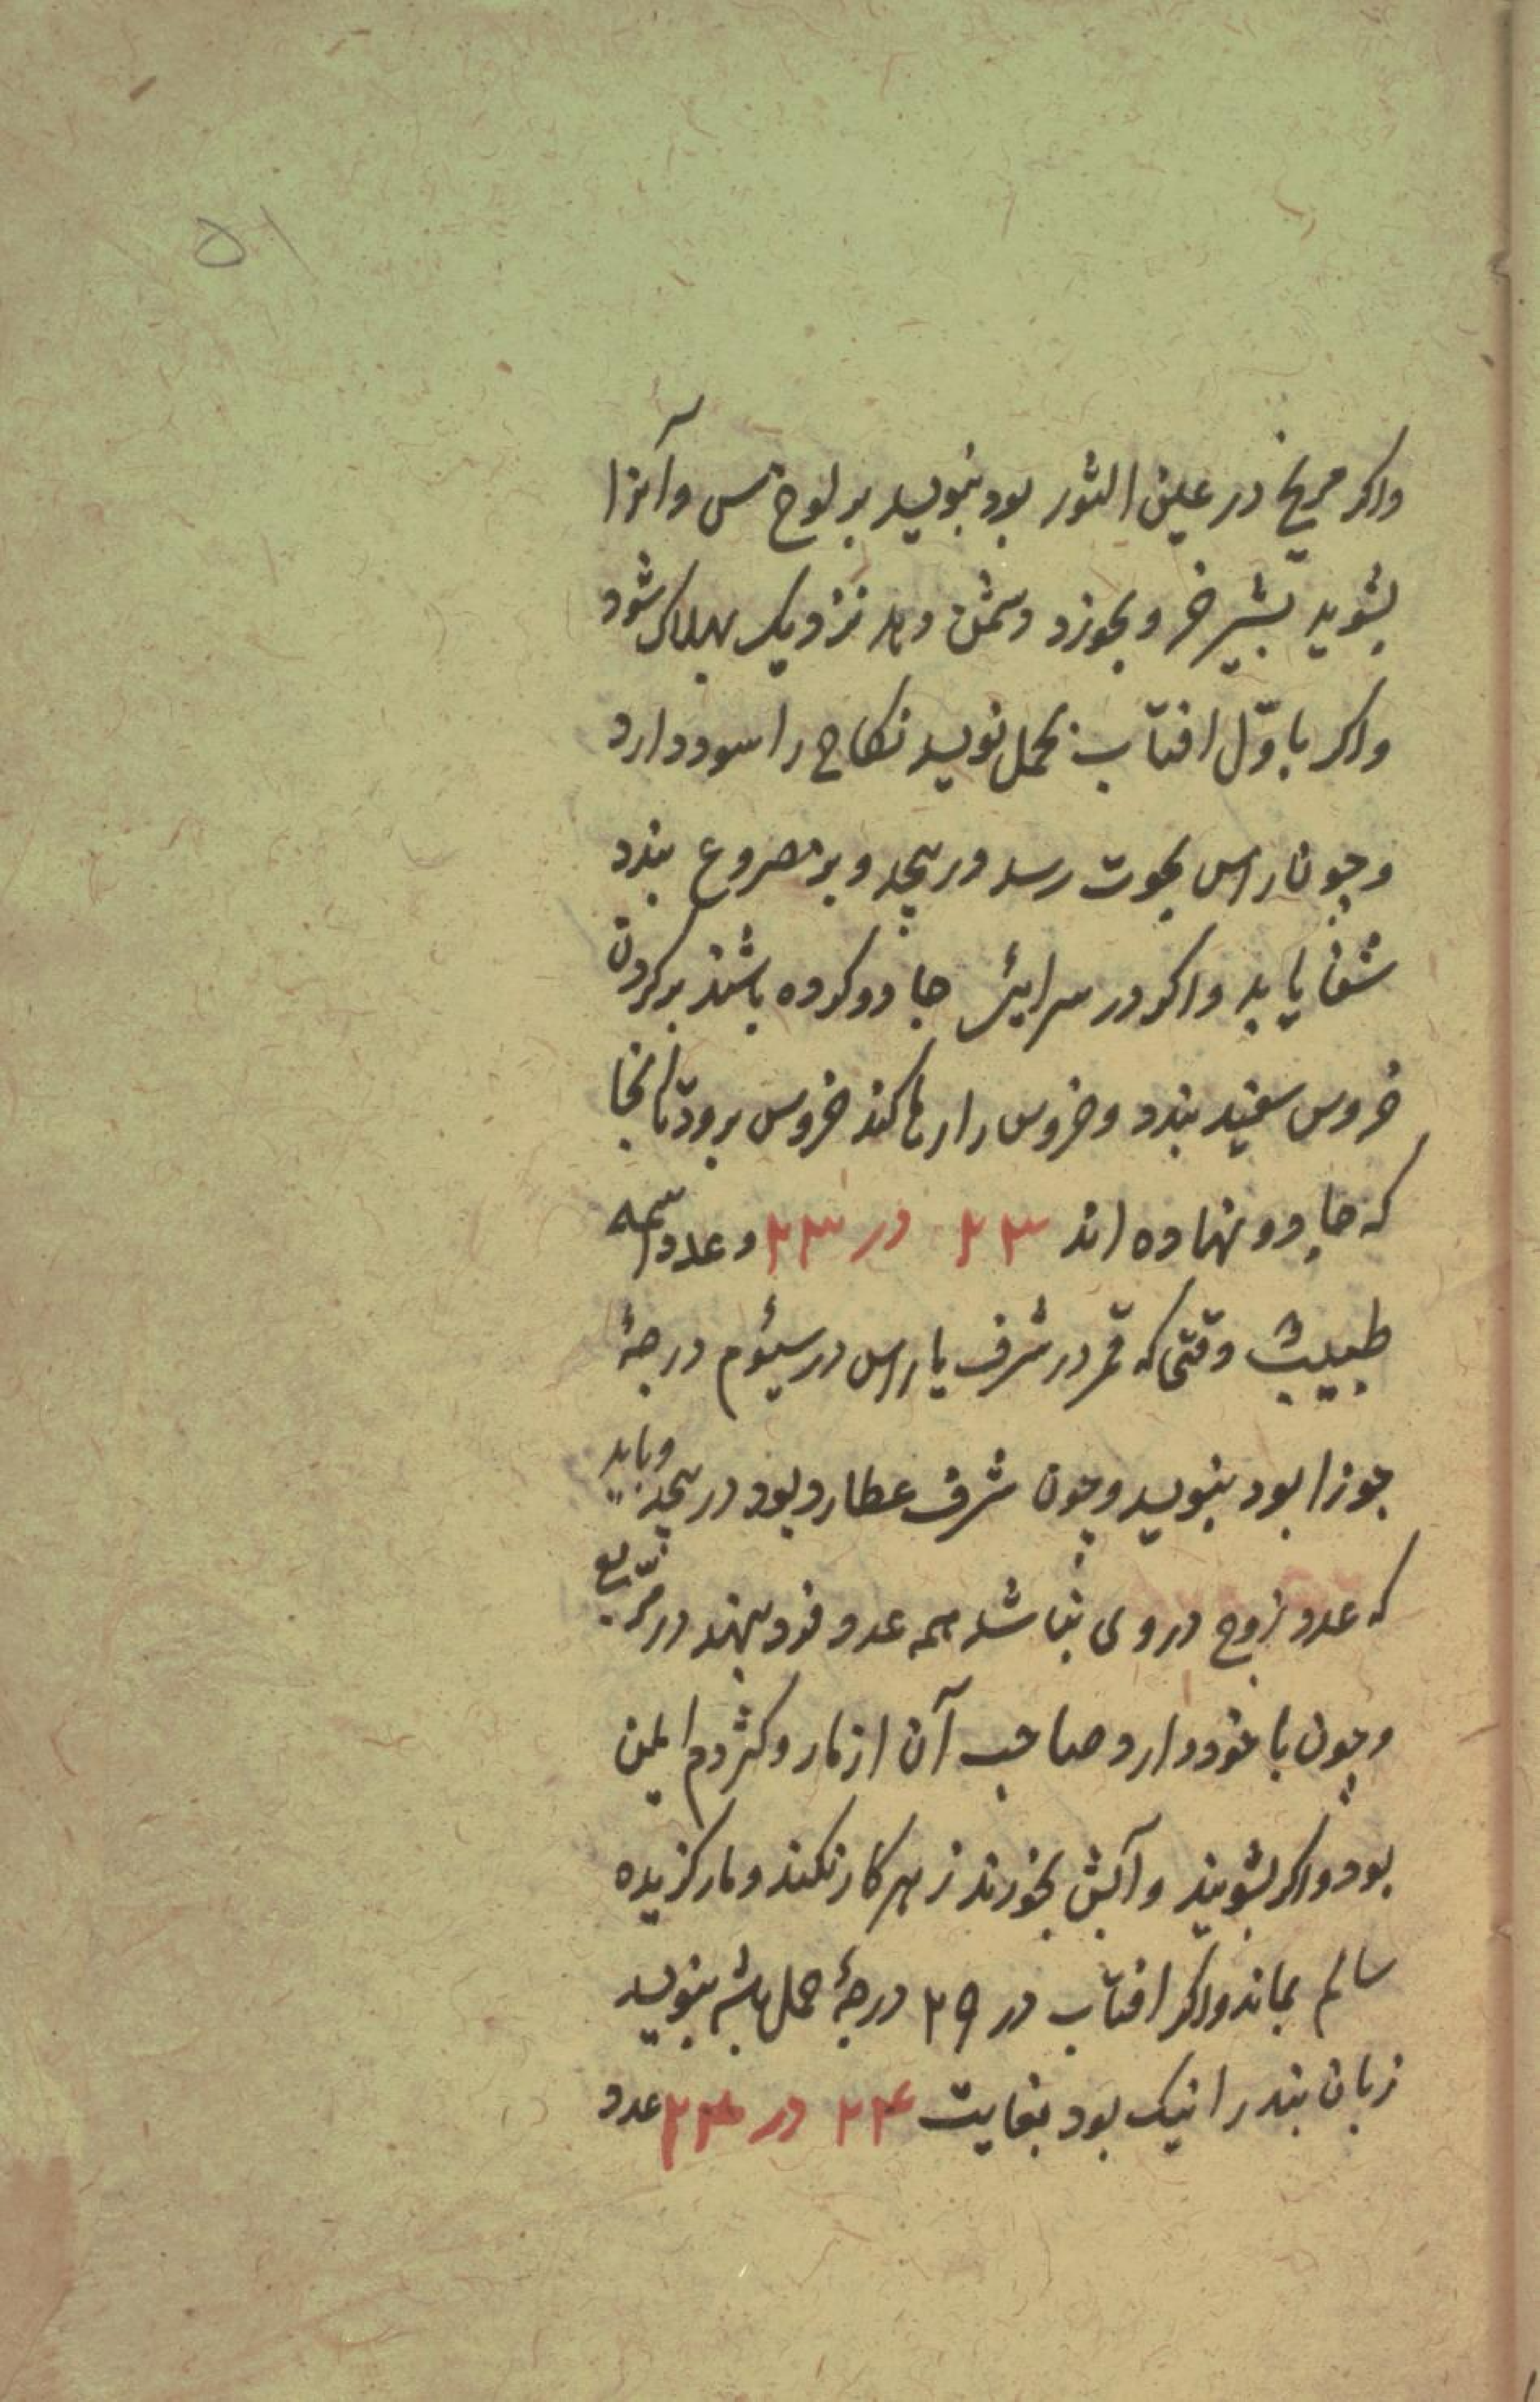 ۵۱
واکر مریخ در عین الثور بود بنویسد بر لوح مس و آنرا
بشوید بشیر خر و بخورد دشمن دهد نزدیک بهلاک شود
واکر باوّل افتاب بحمل نویسد نکاح را سود دارد
و چون راس بحوت رسد در پیچد و بر مصروع بندد
شفا یابد واکر در سرایی جادو کرده باشند بر کردن
خروس سفید بندد و خروس را رها کند خروس برود تا آنجا
که جادو نهاده اند ۲۳ در ۲۳ و عدد اسمه
طبیب وقتی که قمر در شرف یا راس در سیوم درجهٔ
جوزا بود بنویسد و چون شرف عطارد بود در پیچد و باید
که عدد زوج در وی نباشد همه عدد فرد بنهند در مربع
و چون با خود دارد صاحب آن از مار و کژدم ایمن
بود واکر بشویند و آبش بخورند زهر کار نکند و مار کزیده
سالم بماند واکر افتاب در ۲۹ درجهٔ حمل باشد بنویسد
زبان بند را نیک بود بغایت ۲۴ در ۲۴ عدد